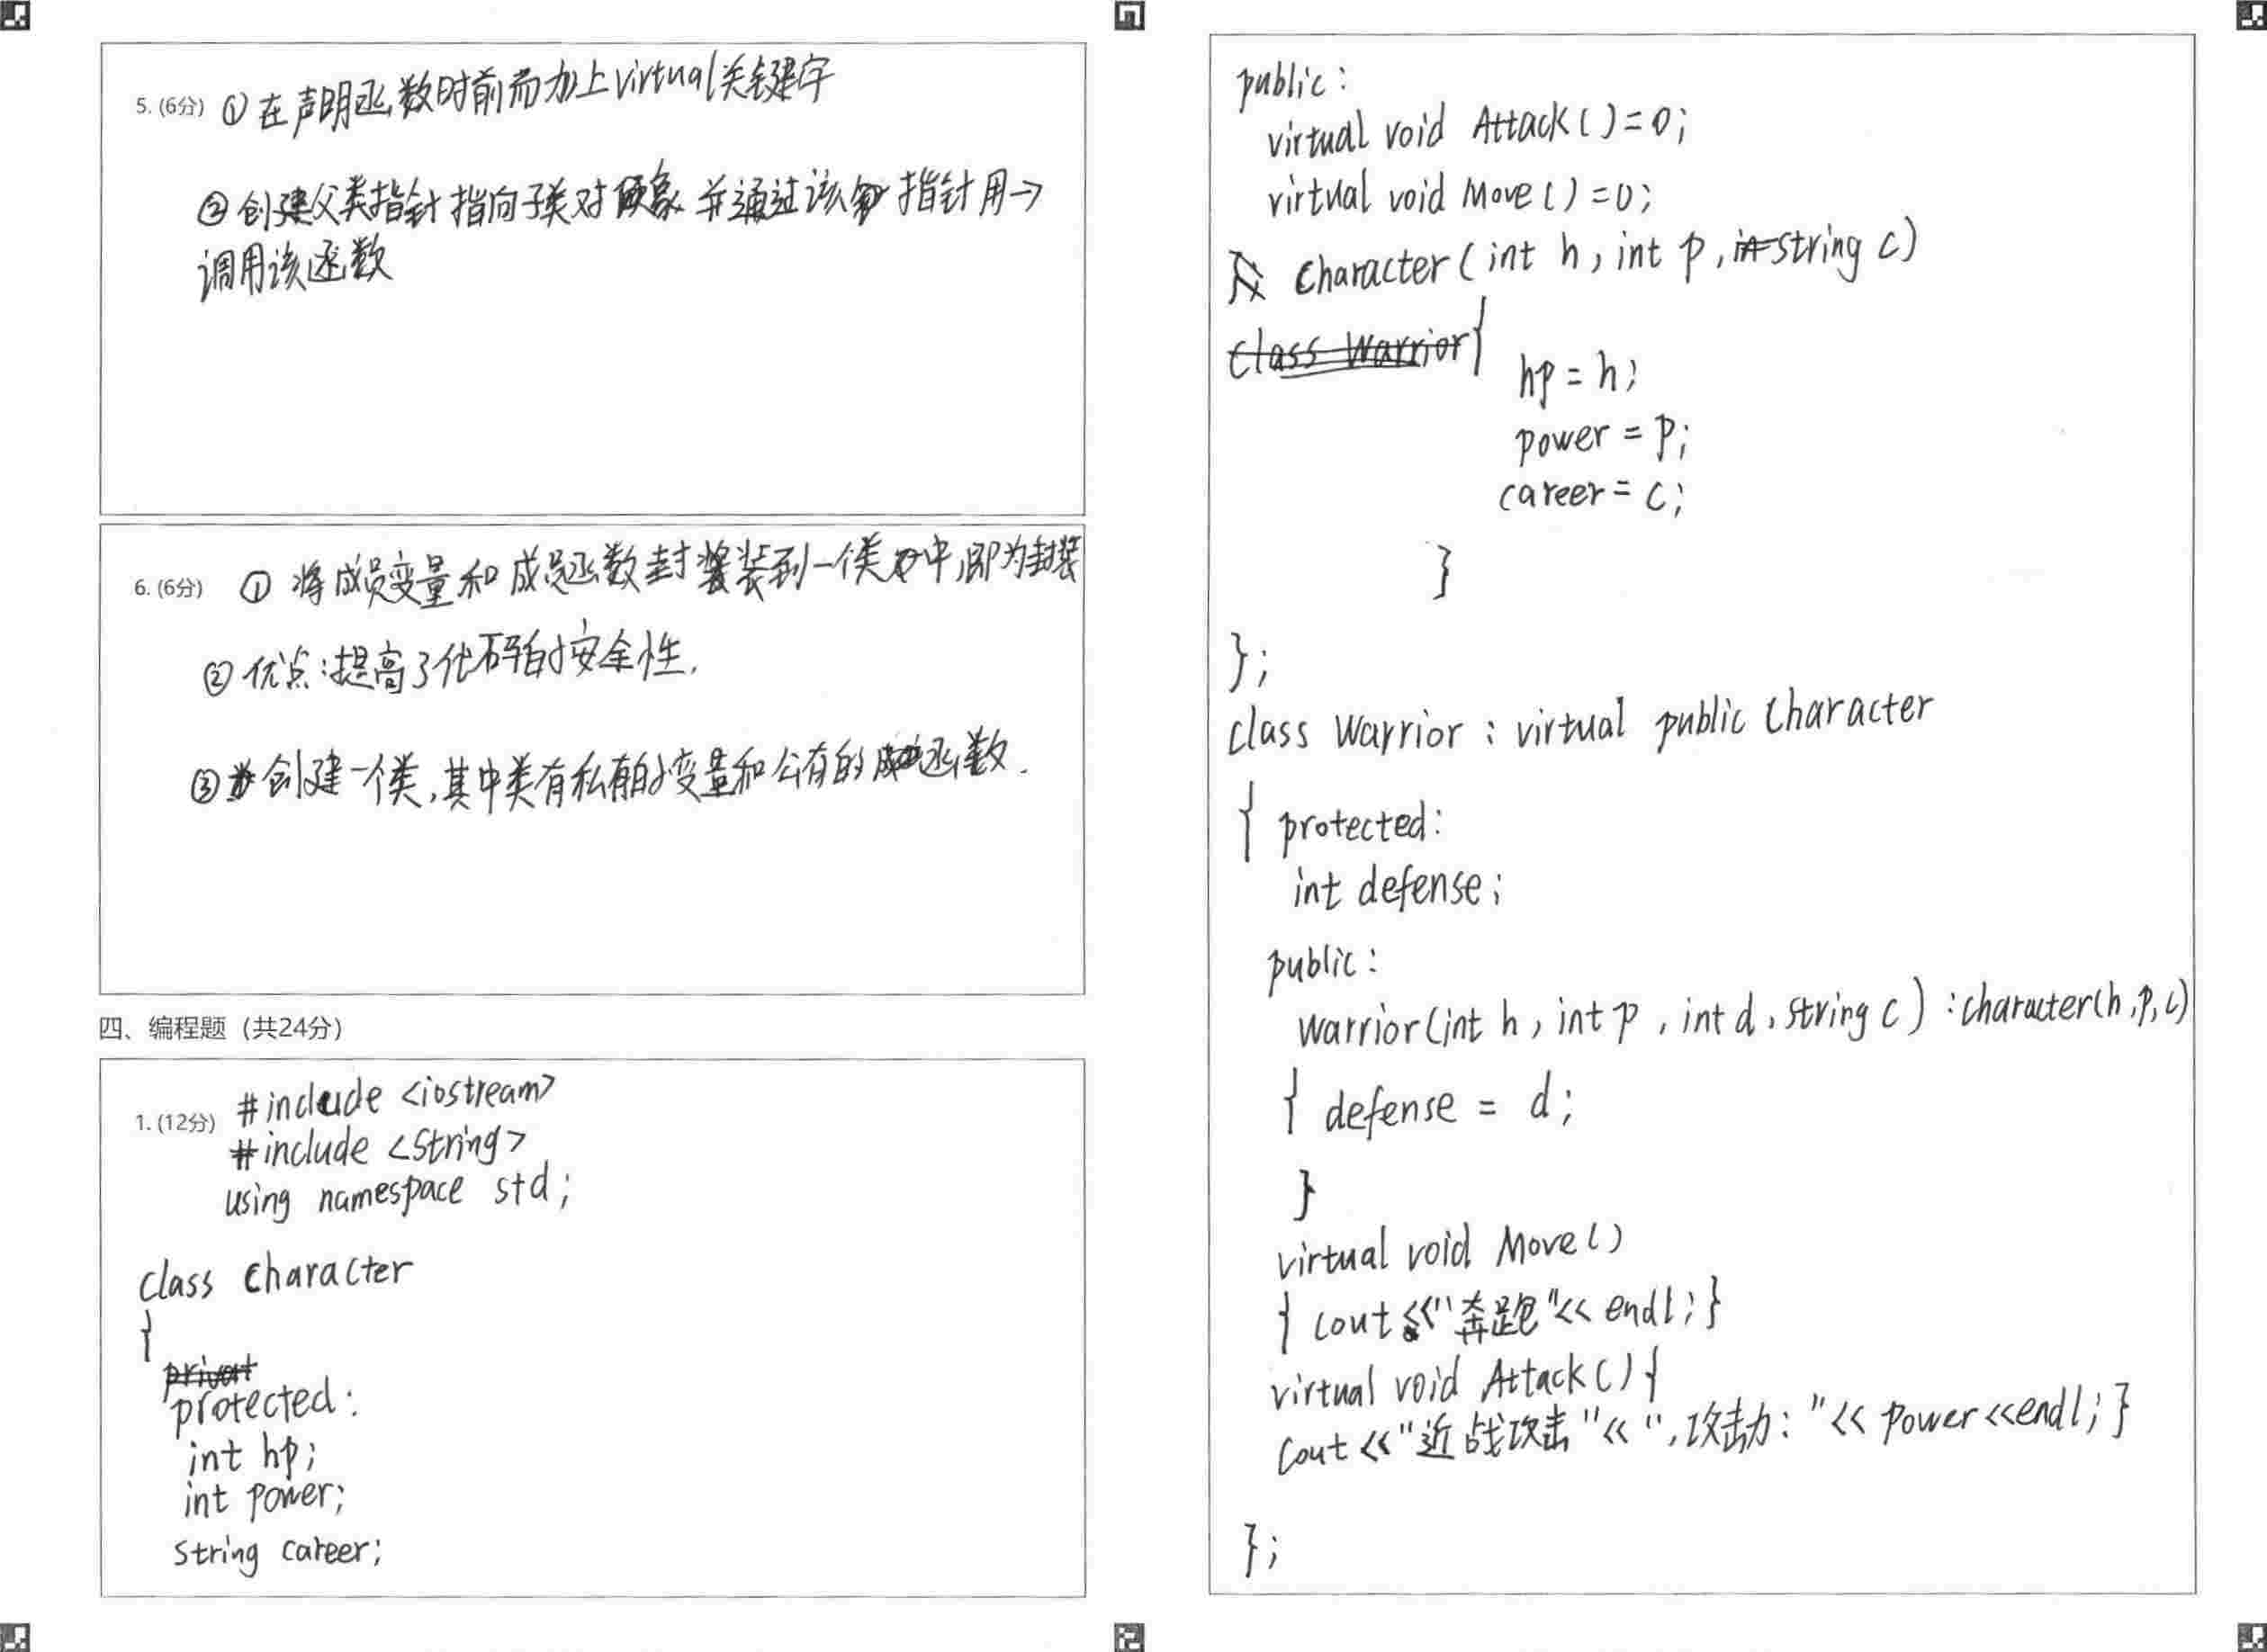 5. (6分) ①在声明函数时前面加上virtual关键字
②创建父类指针指向子类对象 并通过该指针用→
调用该函数
6. (6分) ① 将成员变量和成员函数封装到一个类中,即为封装
②优点:提高了代码的安全性.
③创建一个类,其中类有私有的变量和公有的函数.
四、编程题（共24分）
1. (12分) #include <iostream>
#include <string>
using namespace std;
class Character
{
protected:
int hp;
int power;
string career;
public:
virtual void Attack()=0;
virtual void Move()=0;
Character(int h, int p, string c)
{
hp = h;
power = p;
career = c;
}
};
class Warrior : virtual public Character
{ protected:
int defense;
public:
Warrior(int h, int p, int d, string c) :Character(h,p,c)
{ defense = d;
}
virtual void Move()
{ cout<<"奔跑"<< endl;}
virtual void Attack(){
cout <<"近战攻击"<<",攻击力:"<< power<<endl;}
};